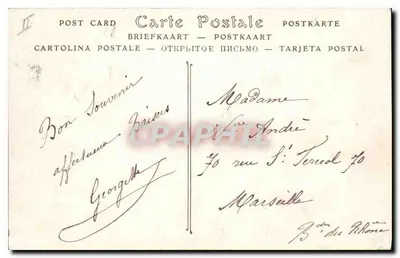 II
POST CARD Carte Postale POSTKARTE
BRIEFKAART — POSTKAART
CARTOLINA POSTALE — ОТКРЫТОЕ ПИСЬМО — TARJETA POSTAL
Bon Souvenir
affectueux Baisers
Georgette
Madame
Vve André
70 rue St Ferréol 70
Marseille
Bches du Rhône
CPAPHIL